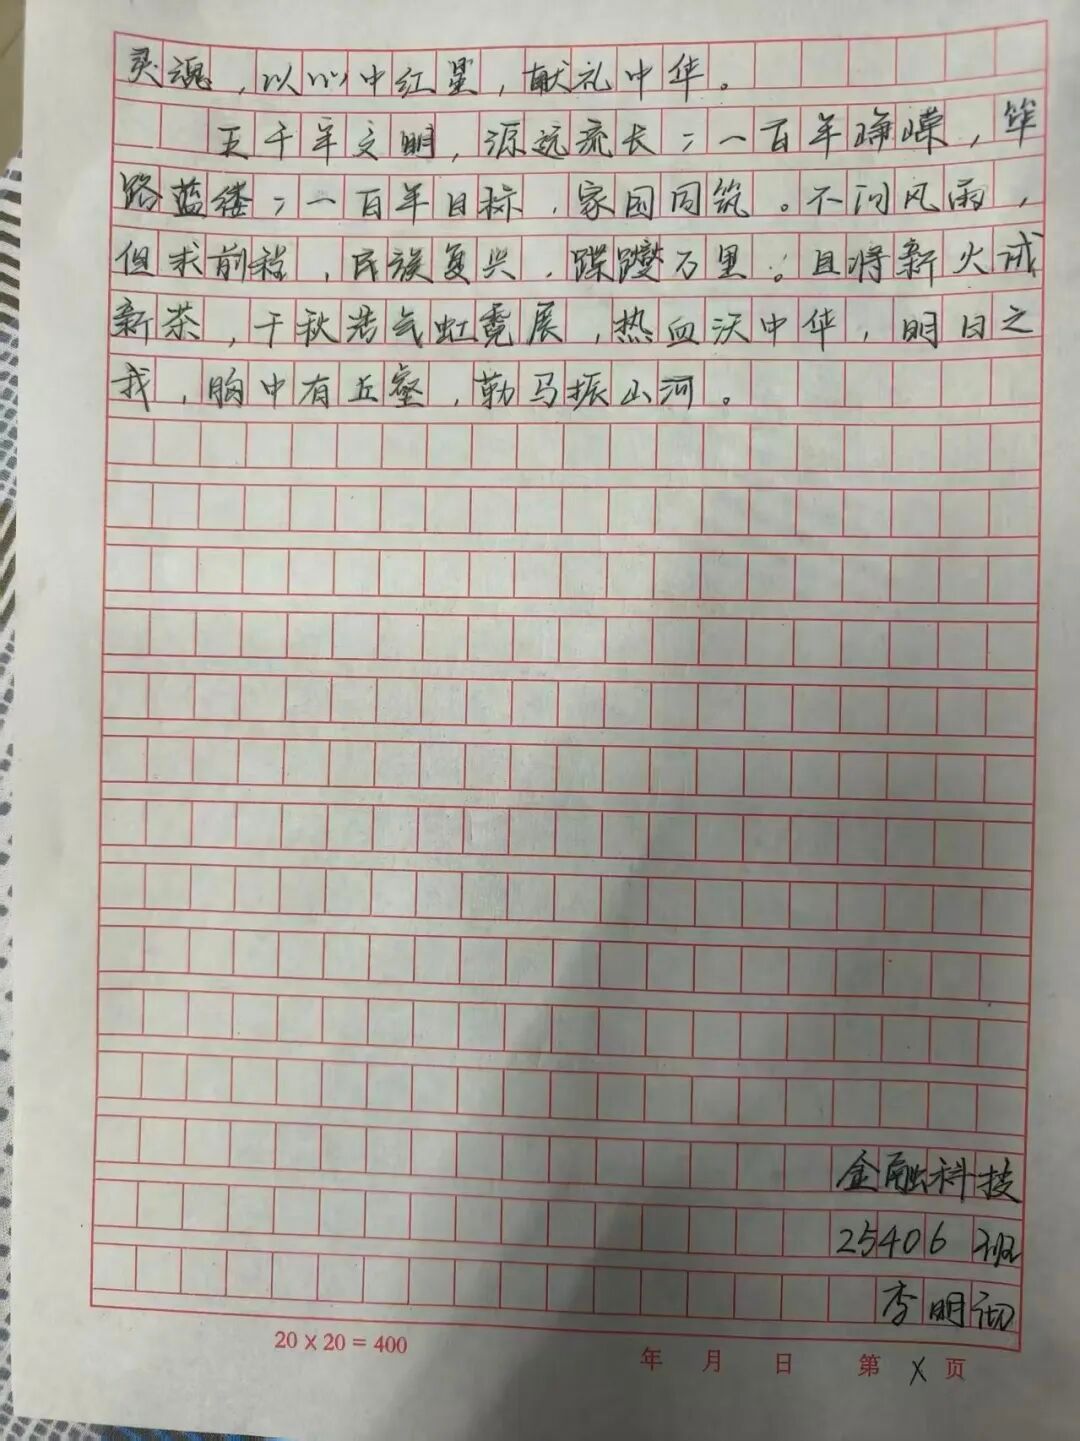 灵魂，以心中红星，献礼中华。
五千年文明，源远流长；一百年峥嵘，筚
路蓝缕；一百年目标，家国同筑。不问风雨，
但求前程，民族复兴，蹀躞万里。且将新火试
新茶，千秋浩气虹霓展，热血沃中华，明日之
我，胸中有丘壑，勒马振山河。
金融科技
25406 班
李明彻
20×20=400
年 月 日 第 X 页